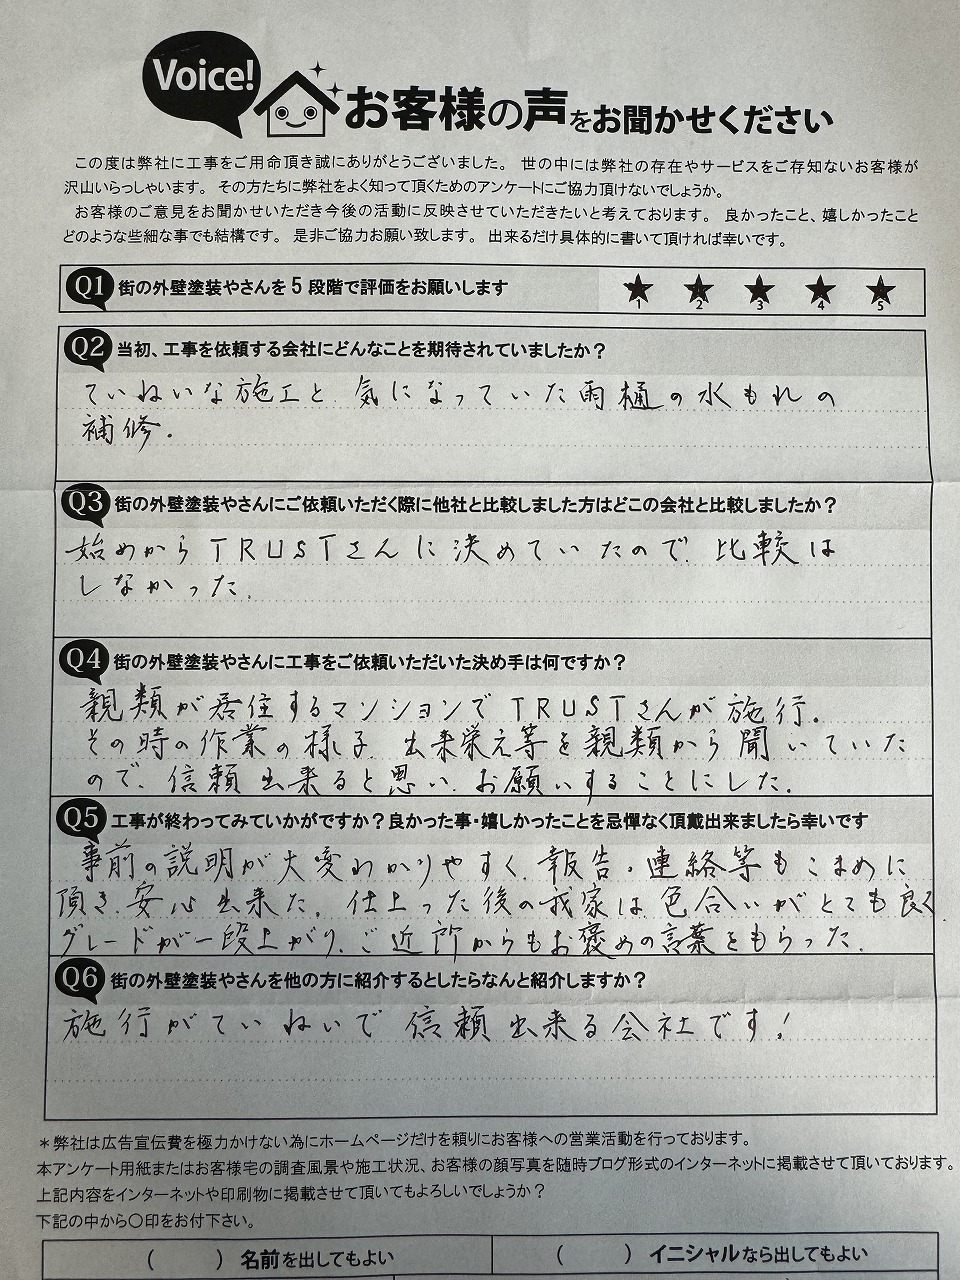 Voice!
お客様の声をお聞かせください
この度は弊社に工事をご用命頂き誠にありがとうございました。 世の中には弊社の存在やサービスをご存知ないお客様が
沢山いらっしゃいます。 その方たちに弊社をよく知って頂くためのアンケートにご協力頂けないでしょうか。
お客様のご意見をお聞かせいただき今後の活動に反映させていただきたいと考えております。 良かったこと、嬉しかったこと
どのような些細な事でも結構です。 是非ご協力お願い致します。 出来るだけ具体的に書いて頂ければ幸いです。
Q1 街の外壁塗装やさんを 5 段階で評価をお願いします ★1 ★2 ★3 ★4 ★5
Q2 当初、工事を依頼する会社にどんなことを期待されていましたか？
ていねいな施工と 気になっていた雨樋の水もれの
補修.
Q3 街の外壁塗装やさんにご依頼いただく際に他社と比較しました方はどこの会社と比較しましたか？
始めからTRUSTさんに決めていたので. 比較は
しなかった.
Q4 街の外壁塗装やさんに工事をご依頼いただいた決め手は何ですか？
親類が居住するマンションでTRUSTさんが施行.
その時の作業の様子. 出来栄え等を親類から聞いていた
ので. 信頼出来ると思い. お願いすることにした.
Q5 工事が終わってみていかがですか？良かった事・嬉しかったことを忌憚なく頂戴出来ましたら幸いです
事前の説明が大変わかりやすく. 報告・連絡等もこまめに
頂き. 安心出来た. 仕上った後の我家は. 色合いがとても良く
グレードが一段上がり. ご近所からもお褒めの言葉をもらった.
Q6 街の外壁塗装やさんを他の方に紹介するとしたらなんと紹介しますか？
施行がていねいで 信頼出来る会社です!
＊弊社は広告宣伝費を極力かけない為にホームページだけを頼りにお客様への営業活動を行っております。
本アンケート用紙またはお客様宅の調査風景や施工状況、お客様の顔写真を随時ブログ形式のインターネットに掲載させて頂いております。
上記内容をインターネットや印刷物に掲載させて頂いてもよろしいでしょうか？
下記の中から〇印をお付下さい。
（　　　）名前を出してもよい （　　　）イニシャルなら出してもよい